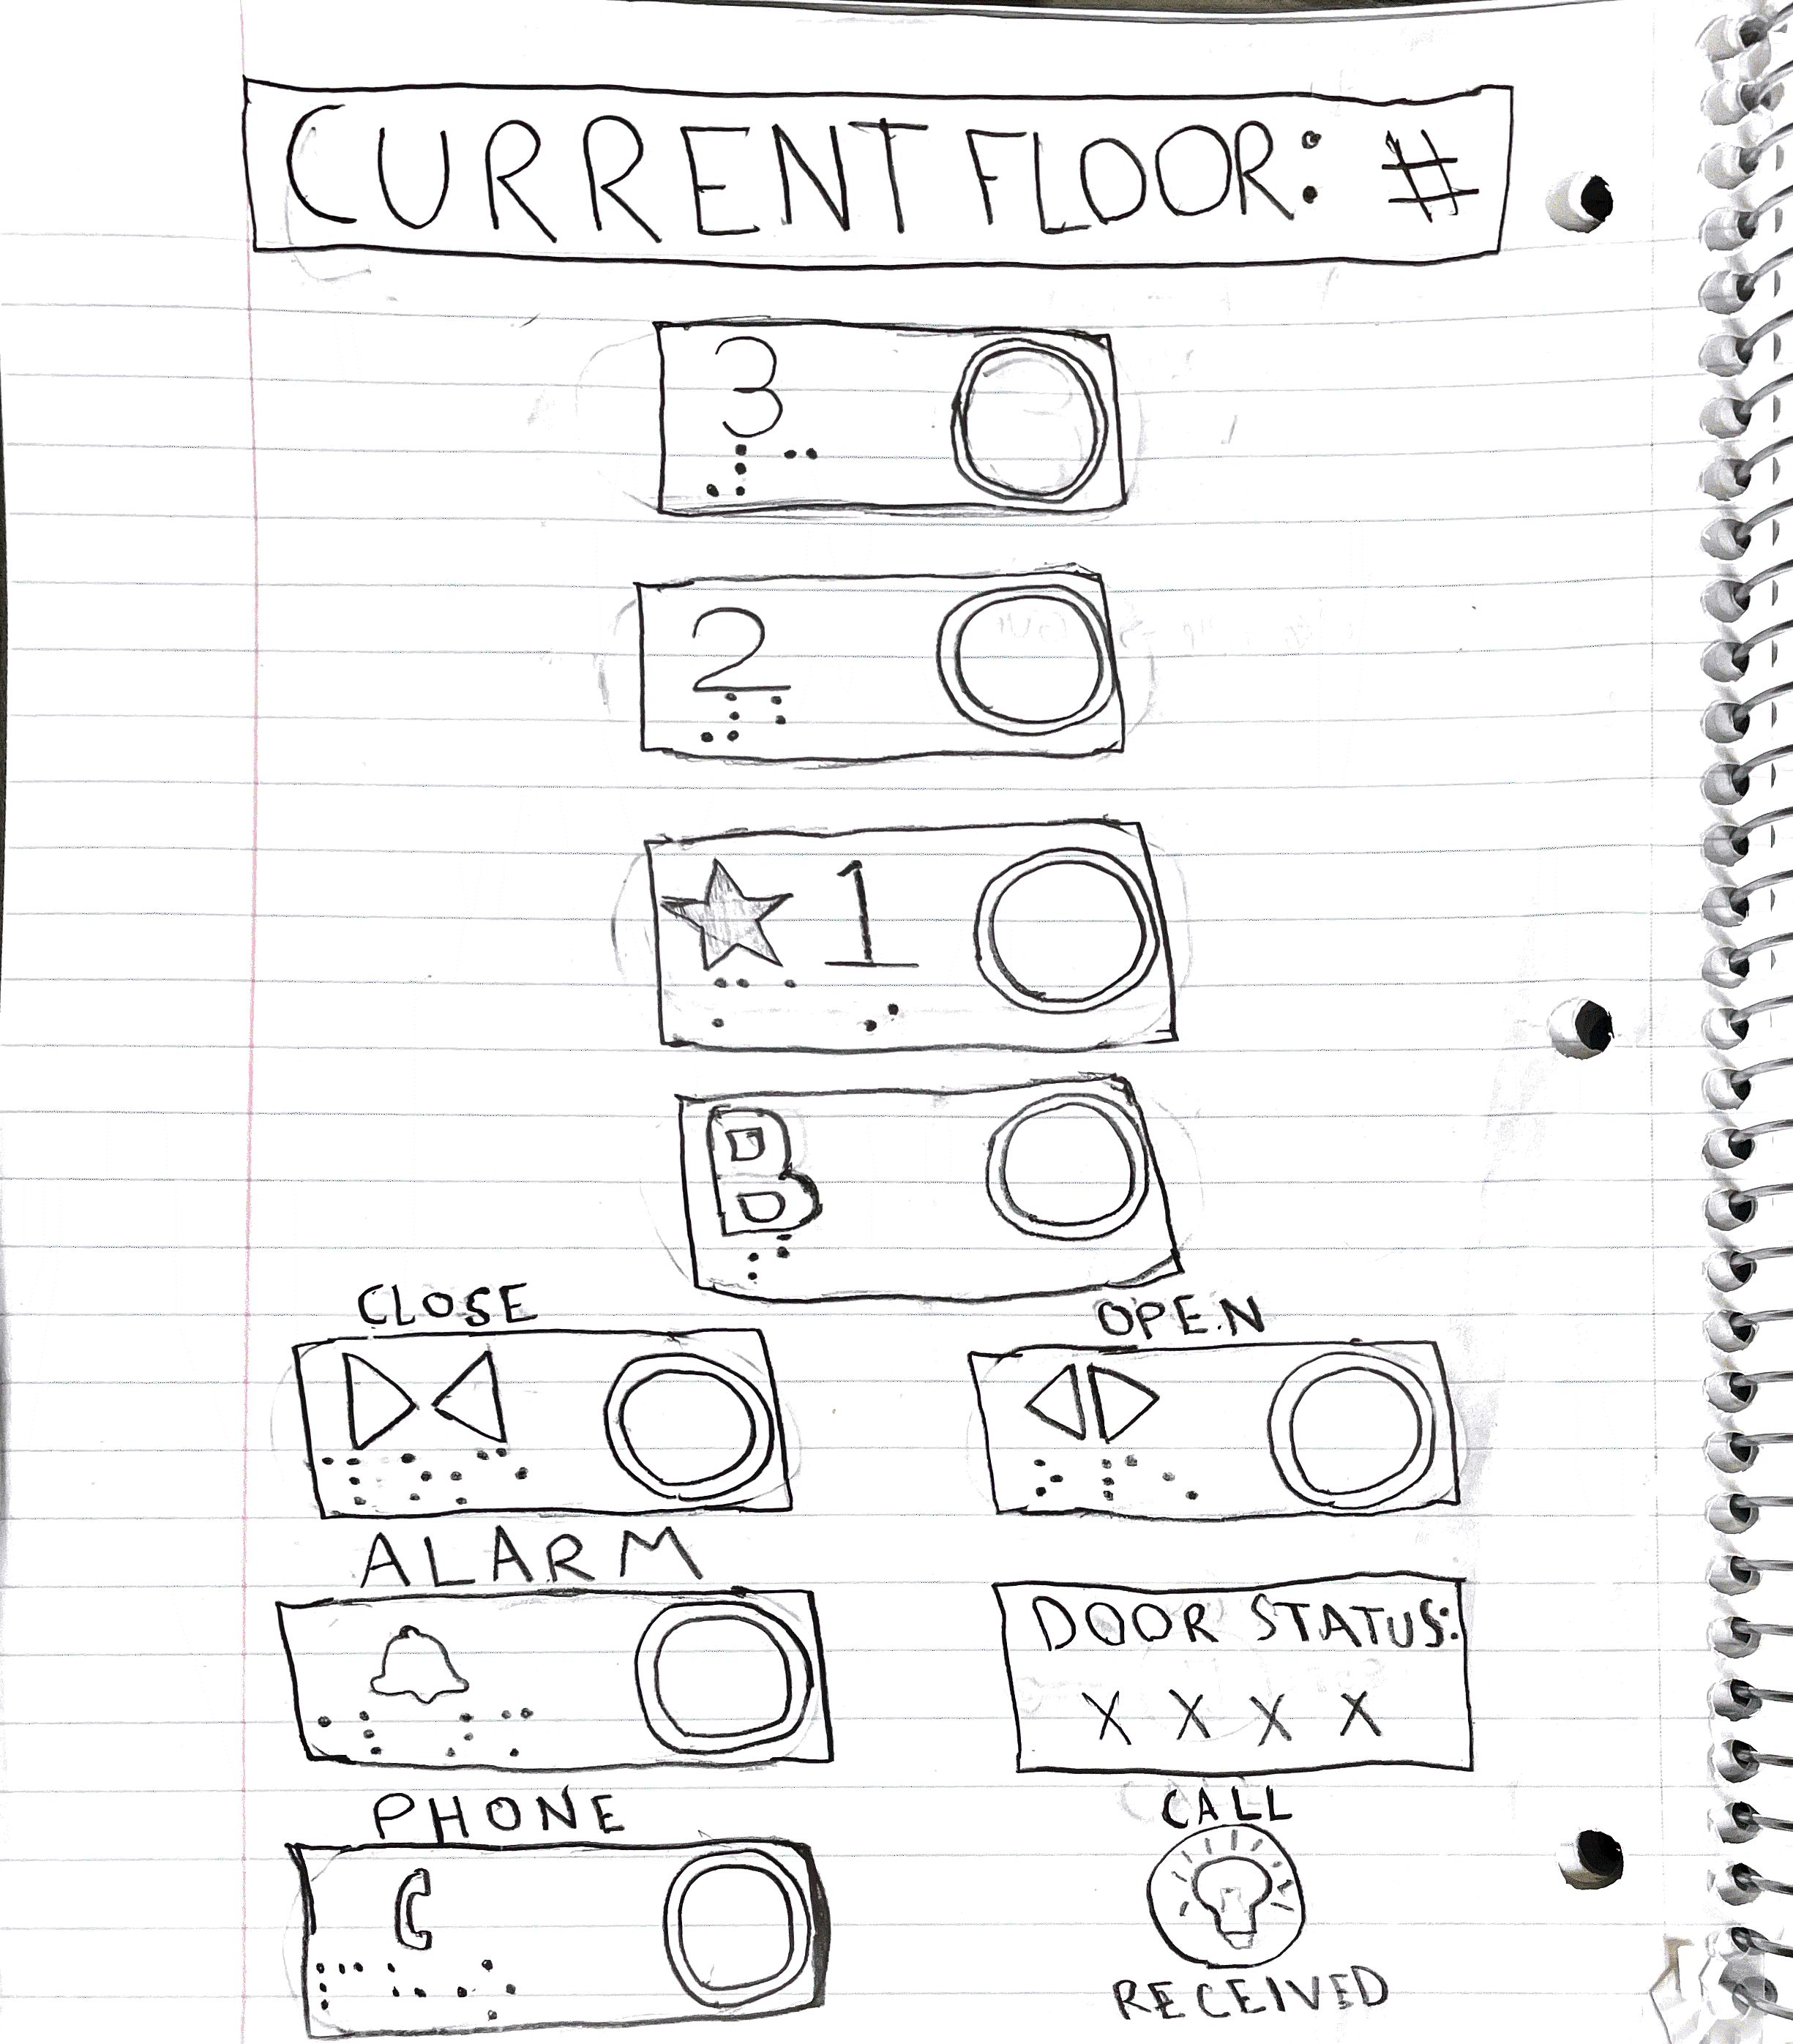 CURRENT FLOOR: #
3
2
★ 1
B
CLOSE
OPEN
ALARM
DOOR STATUS:
X X X X
PHONE
CALL
RECEIVED